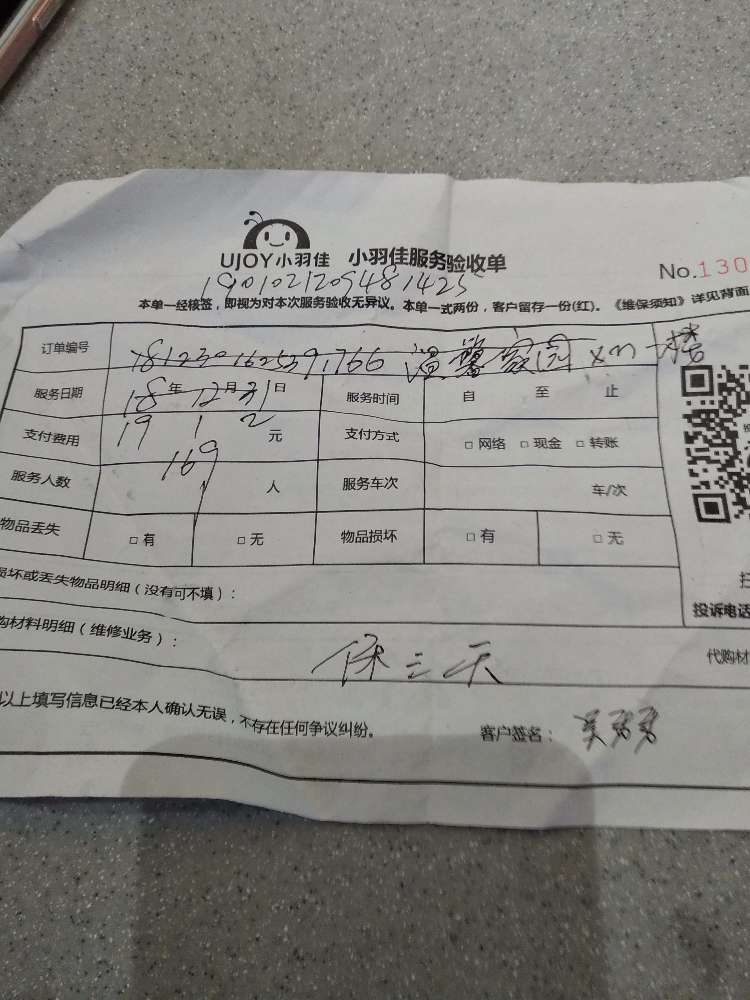 UJOY小羽佳 小羽佳服务验收单
No.130
1901021209481425
本单一经核签，即视为对本次服务验收无异议。本单一式两份，客户留存一份(红)。《维保须知》详见背面
订单编号 181230162539,766 温馨家园 xm 一楼
服务日期 18年12月31日 服务时间 自 至 止
19 1 2
支付费用 169 元 支付方式 □ 网络 □ 现金 □ 转账
服务人数 1 人 服务车次 车/次
物品丢失 □ 有 □ 无 物品损坏 □ 有 □ 无
损坏或丢失物品明细（没有可不填）：
投诉电话
购材料明细（维修业务）： 代购材
保三天
以上填写信息已经本人确认无误，不存在任何争议纠纷。 客户签名：